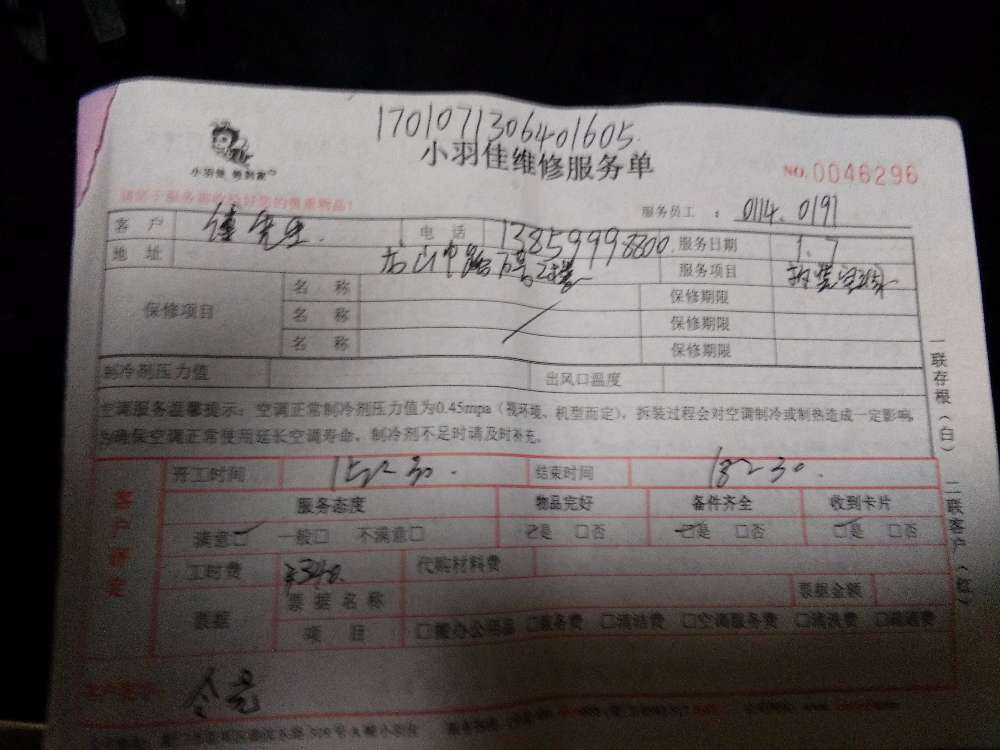 1701071306401605
小羽佳 修到家
小羽佳维修服务单
NO.0046296
服务员工 : 0114.0191
客户 先生 电话 13859998800 服务日期 1.7
地址 服务项目
保修项目 名称 保修期限
名称 保修期限
名称 保修期限
制冷剂压力值 出风口温度
空调服务温馨提示:空调正常制冷剂压力值为0.45mpa(视环境、机型而定),拆装过程会对空调制冷或制热造成一定影响,
为确保空调正常使用延长空调寿命,制冷剂不足时请及时补充。
开工时间 15:30 结束时间 18:30
服务态度 物品完好 备件齐全 收到卡片
满意□ 一般□ 不满意□ □是 □否 □是 □否 □是 □否
工时费 ¥340. 代购材料费
票据 票据名称 票据金额
项目 □搬办公用品 □服务费 □清洁费 □空调服务费 □清洗费
一联存根(白) 二联客户(红)